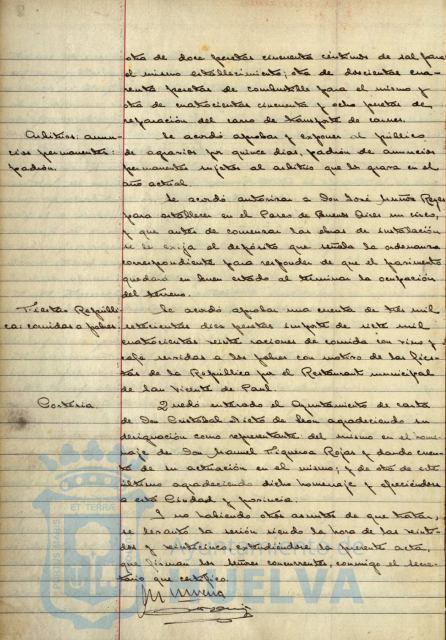 otra de doce pesetas cincuenta céntimos de sal para
el mismo establecimiento; otra de doscientas cua-
renta pesetas de combustible para el mismo y
otra de cuatrocientas cincuenta y ocho pesetas de
reparación del carro de transporte de carnes.
Arbitrios: anun-
cios permanentes:
padrón.
Se acordó aprobar y exponer al público
de agravios por quince días, padrón de anuncios
permanentes sujetos al arbitrio que los grava en el
año actual.
Se acordó autorizar a Don José Muñoz Reyes
para establecer en el Paseo de Buenos Aires un circo,
y que antes de comenzar las obras de instalación
se le exija el depósito que señala la ordenanza
correspondiente para responder de que el pavimento
quedará en buen estado al terminar la ocupación
del terreno.
Fiestas Repúbli-
ca: comidas a pobres
Se acordó aprobar una cuenta de tres mil
setecientas diez pesetas importe de siete mil
cuatrocientas veinte raciones de comida con vino y
café servidas a los pobres con motivo de las fies-
tas de la República por el Restaurant municipal
de San Vicente de Paul.
Cortesía
Quedó enterado el Ayuntamiento de carta
de Don Cristóbal Nieto de León agradeciendo su
designación como representante del mismo en el home-
naje de Don Manuel Figueroa Rojas y dando cuen-
ta de su actuación en el mismo; y de otra de este
último agradeciendo dicho homenaje y ofreciéndose
a esta Ciudad y provincia.
Y no habiendo otros asuntos de que tratar,
se levantó la sesión siendo la hora de las veinti-
dós y veinticinco extendiéndose la presente acta,
que firman los señores concurrentes, conmigo el secre-
tario que certifico.
ET TERRA
Ayuntamiento de
HUELVA